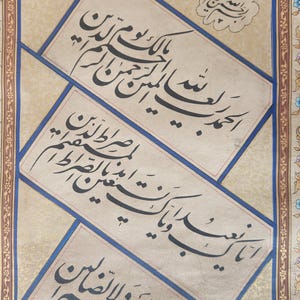 الحمد لله رب العالمین
الرحمن الرحیم مالک یوم الدین
ایاک نعبد و ایاک نستعین
اهدنا الصراط المستقیم صراط الذین
ولا الضالین